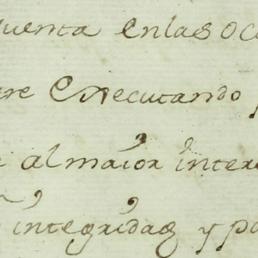 uenta enlas oc
re executando
almaior inter
integridad y p